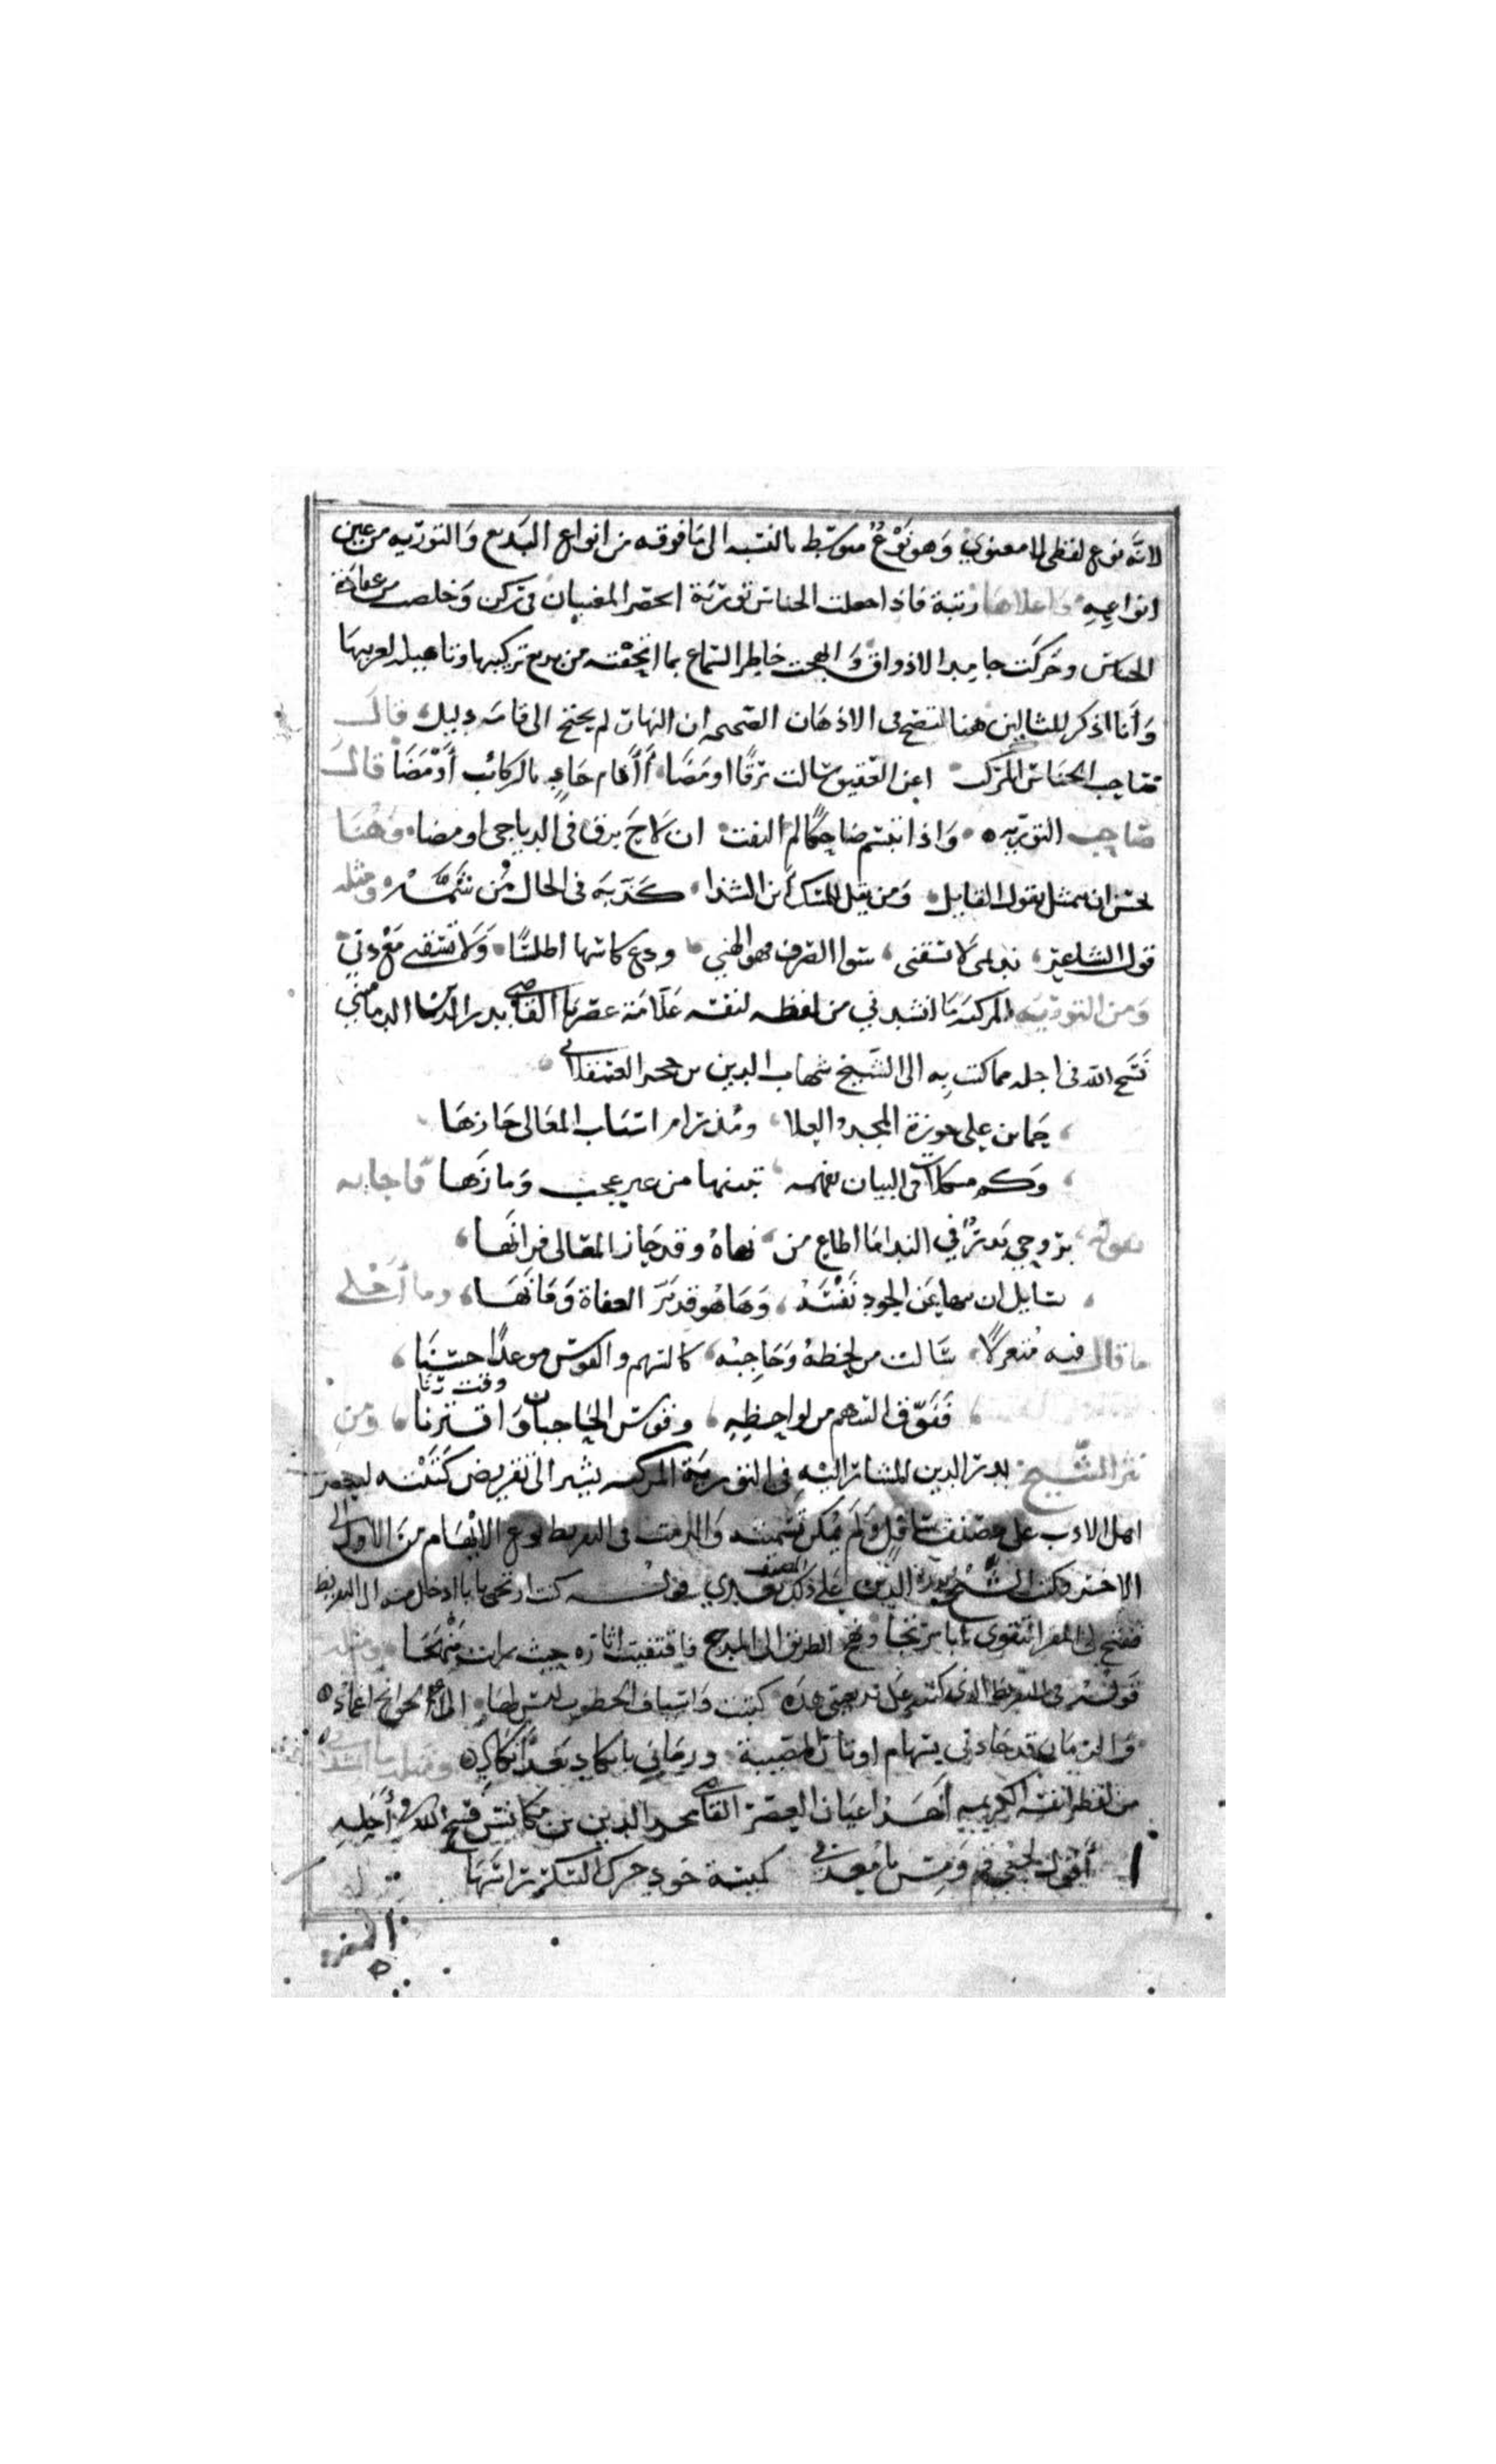 لانه نوع لفظى لا معنوي وَهو نَوْعٌ متوسّط بالنسبه الى مَا فوقه من انواع البَديع وَالتوريه من عين
انواعِهِ وَاعلاهَا رتبة فاذا جعلت الجناس تورِيَة انحصر المعنيان فى ركن وَخلصت من عقادة
الجناس وحَركَت جامد الاذواق وَابهجت خاطر السماع بما اتحفته من بديع تركيبها وتاهيل لغريبهَا
وَأنا اذكر المثالين هنا لتضح فى الاذهَان الصحيحه ان النهار لم يحتج الى اقامَه دليل، قالَ
صَاحِب الجنَاس المركب اعن العَقيق سَالت بَرقًا اومَضَا، أَأَقام حَادٍ بالركائب أَوْمَضَا قالَ
صَاحِب التوريه وَاذا تبسّم ضاحِكًا لم التفت ان لَاحَ برق فى الدياجى اومضا. وَهُنَا
يحسن ان يتمثل بقول القايل. وَمن يقل للمسك أين الشذا، كَذّبَه فى الحال مُن شَمَّهْ ومثله
قول الشاعِر، نديمى لَا تسقنى، سوا الصرف فهو الهني ودع كاسها اطلسًا. وَلَا تسقنى مَعْ دني
وَمن التورِيَه المركبَه مَا انشدني من لفظه لنفسه عَلّامَة عصْرِنا القاضى بدر الدين الدمامينى
فَسَحَ الله فى اجله مما كتب به الى الشَيخ شهاب الدين بن حجر العسقلانى
حِمَا بن على حوزة المجد والعلا، ومُذ رام اسْبَاب المعَالى حَازهَا
وَكم مشكلات فى البيان بفهمه تبينها من غير عجب وَمازَها فاجابه
بقوله، برُوحي بَدرٌ في الندا مَا اطاع من نهاهُ وقد حَاز المعَالى فزانهَا،
يسَايل ان ينها عَن الجودِ نَفسَهُ، وَهَا هُو قد بَرّ العفاة وَمَانَهَا، وما أحلى
مَا قال فيه مُتغزلًا، سَالت من لحظهِ وَحَاجبْه، كالسهم والقوس موعدًا حسنَا،
ففَوّق السهم من لواحِظِهِ، وقوس الحاجبان وقت رنا وَاقترنا، ومِن
نثر الشّيخ بدر الدين المشار اليْهِ فى التورِيَة المركبه يشير الى تقريض كتبْته لبعض
اهل الادب على مصَنف سَافل وَلم يُمكن تسميته وَالتزمت فى التقريظ نوع الابْهام من الاول الى
الاخر فكتب الشّيخ بدر الدين على ذلك المصنف بعدي قوله كنت ارتجى بابا ادخل منه الى التقريظ
ففتح لى المقر التقوي بابا مرتجا ونهج الطريق الى المدح فاقتفيت اثاره حيث رات مَنْهجا ومثله
قوله فى التقريظ الذى كتبه على بديعيتى هذه كتبت وَاسياف الخطوب ليس لهَا الى الجوانح اغمادٌ
وَالزمَان قد جاءنى بسهام اوتار المصيبة ورمَاني بانكاد بَعْد انكادٍ ومثله مَا انشدنى
من لفظه لنفسه الكريمه أحَد اعيَان العصر القاضى مجد الدين بن مكانس فسح الله فى أجَلِهِ
أقول لحبى قم وَمِس يا معذبى كميسة خودٍ حرك السكر راسَهَا